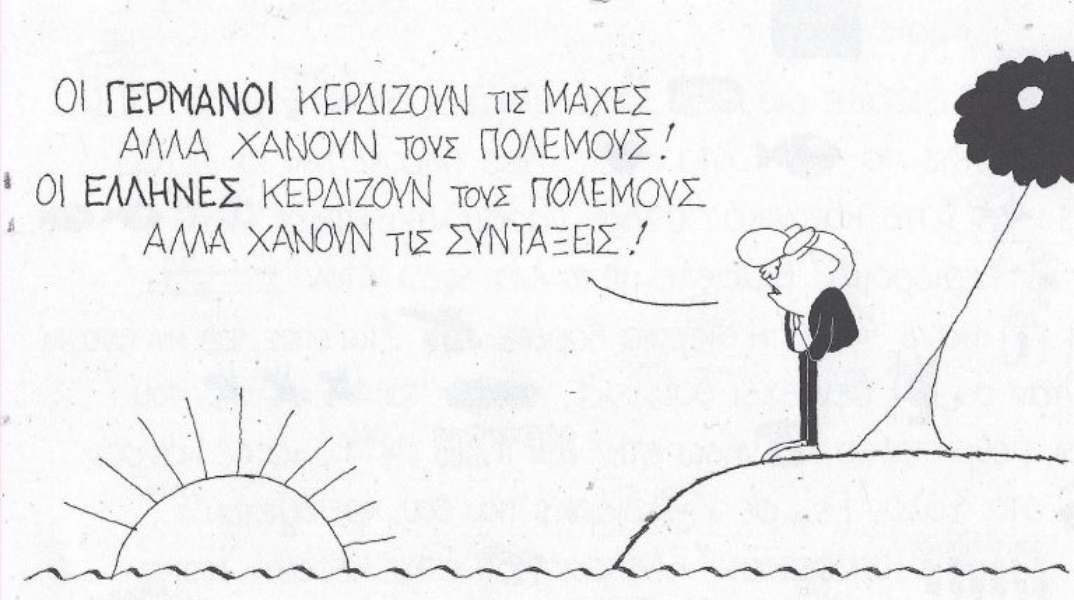 ΟΙ ΓΕΡΜΑΝΟΙ ΚΕΡΔΙΖΟΥΝ ΤΙΣ ΜΑΧΕΣ
ΑΛΛΑ ΧΑΝΟΥΝ ΤΟΥΣ ΠΟΛΕΜΟΥΣ!
ΟΙ ΕΛΛΗΝΕΣ ΚΕΡΔΙΖΟΥΝ ΤΟΥΣ ΠΟΛΕΜΟΥΣ
ΑΛΛΑ ΧΑΝΟΥΝ ΤΙΣ ΣΥΝΤΑΞΕΙΣ!